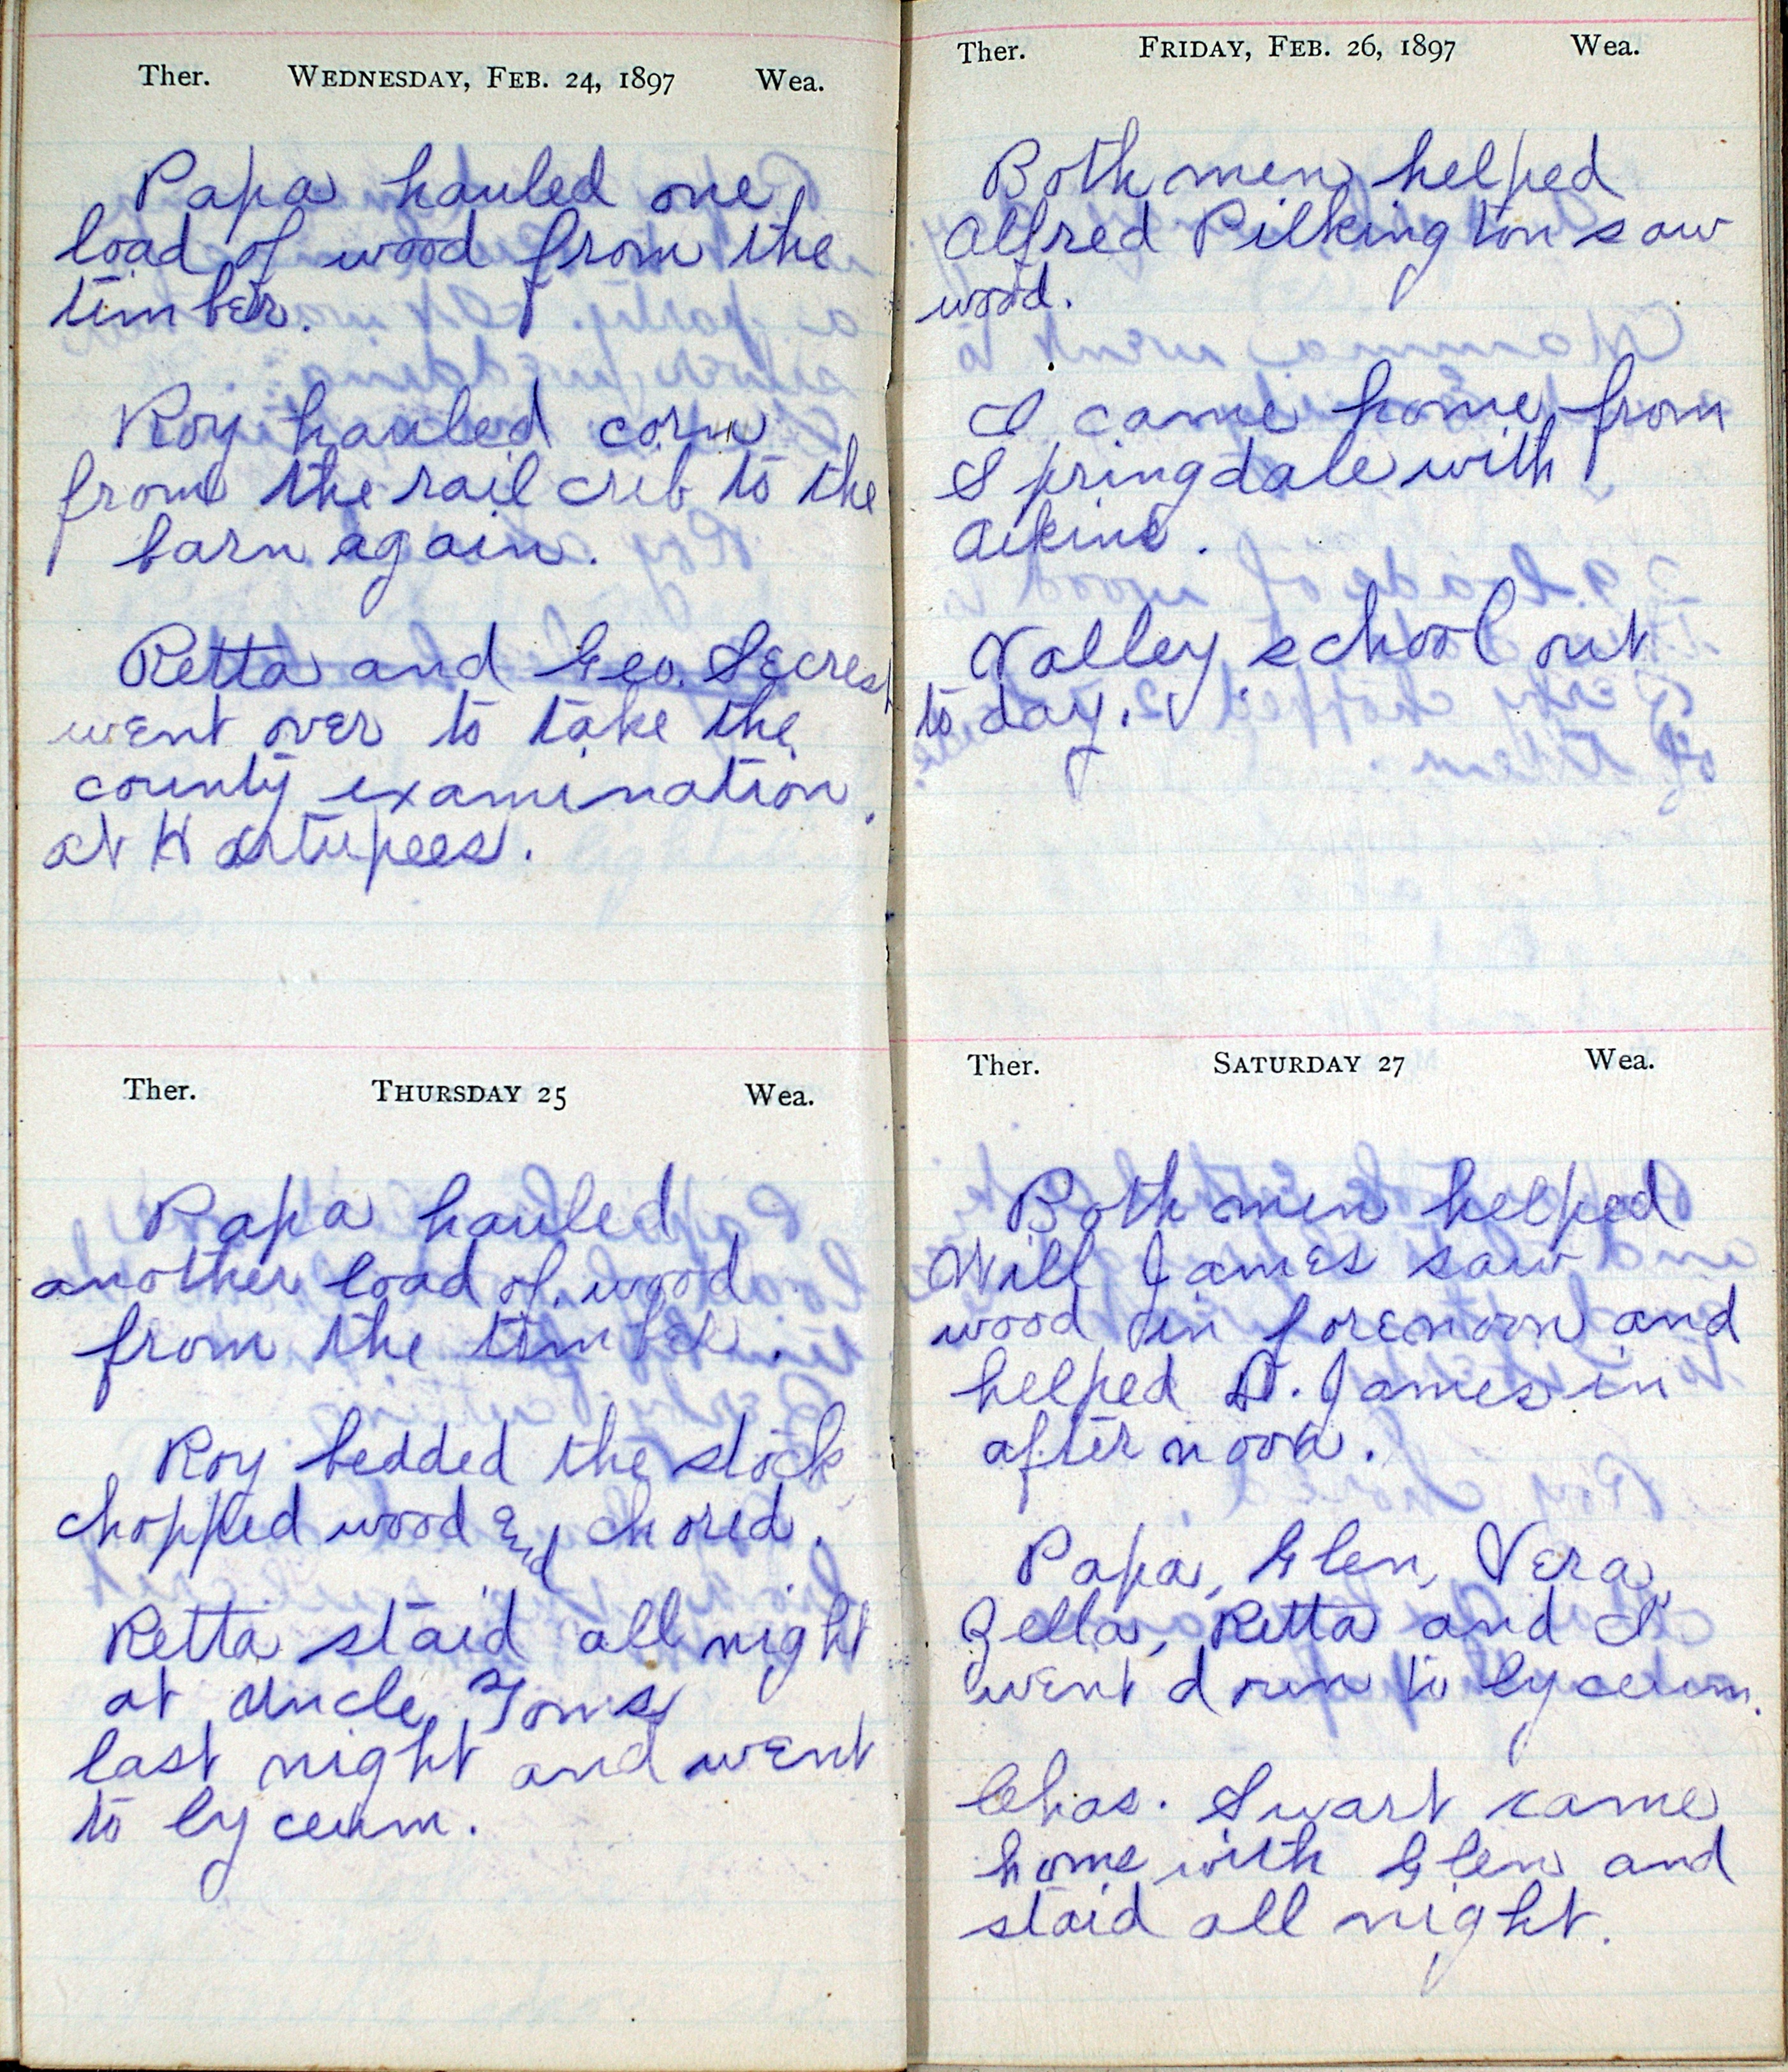 Ther. WEDNESDAY, FEB. 24, 1897 Wea.
Papa hauled one
load of wood from the
timber.
Roy hauled corn
from the rail crib to the
barn again.
Retta and Geo. Secrest
went over to take the
county examination
at Hartupees.
Ther. THURSDAY 25 Wea.
Papa hauled
another load of wood
from the timber.
Roy bedded the stock
chopped wood and chored.
Retta staid all night
at Uncle Toms
last night and went
to lyceum.
Ther. FRIDAY, FEB. 26, 1897 Wea.
Both men helped
Alfred Pilkington saw
wood.
I came home from
Springdale with
Aikins.
Valley school out
to day.
Ther. SATURDAY 27 Wea.
Both men helped
Will James saw
wood in forenoon and
helped D. James in
afternoon.
Papa, Glen, Vera,
Zella, Retta and I
went down to lyceum.
Chas. Swart came
home with Glen and
staid all night.